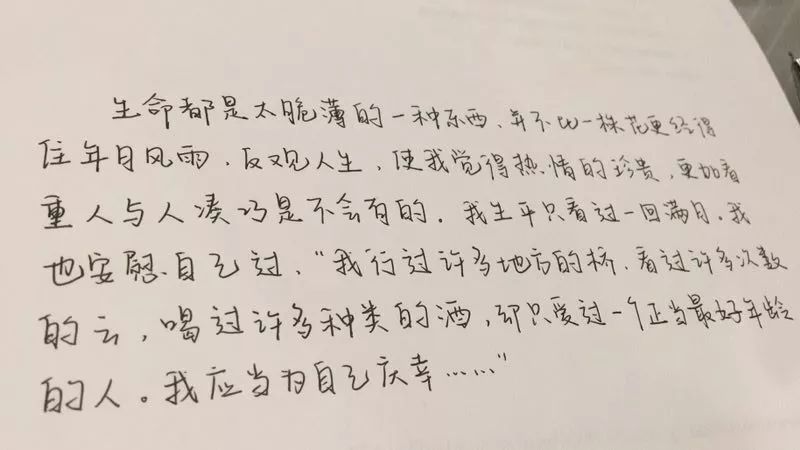 生命都是太脆薄的一种东西、并不比一株花更经得
住年月风雨、反观人生，使我觉得热情的珍贵，更加看
重人与人凑巧是不会有的。我生平只看过一回满月。我
也安慰自己过、“我行过许多地方的桥、看过许多次数
的云，喝过许多种类的酒，却只爱过一个正当最好年龄
的人。我应当为自己庆幸……”